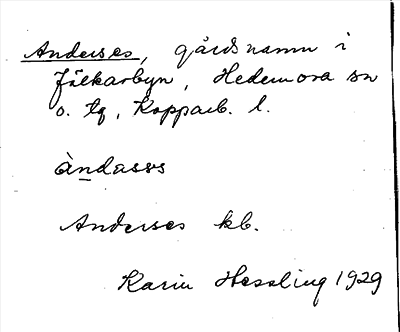 Anderses, gårdsnamn i
Jälkarbyn, Hedemora sn
o. tg, Kopparb. l.
àndasɐs
Anderses kb.
Karin Hessling 1929